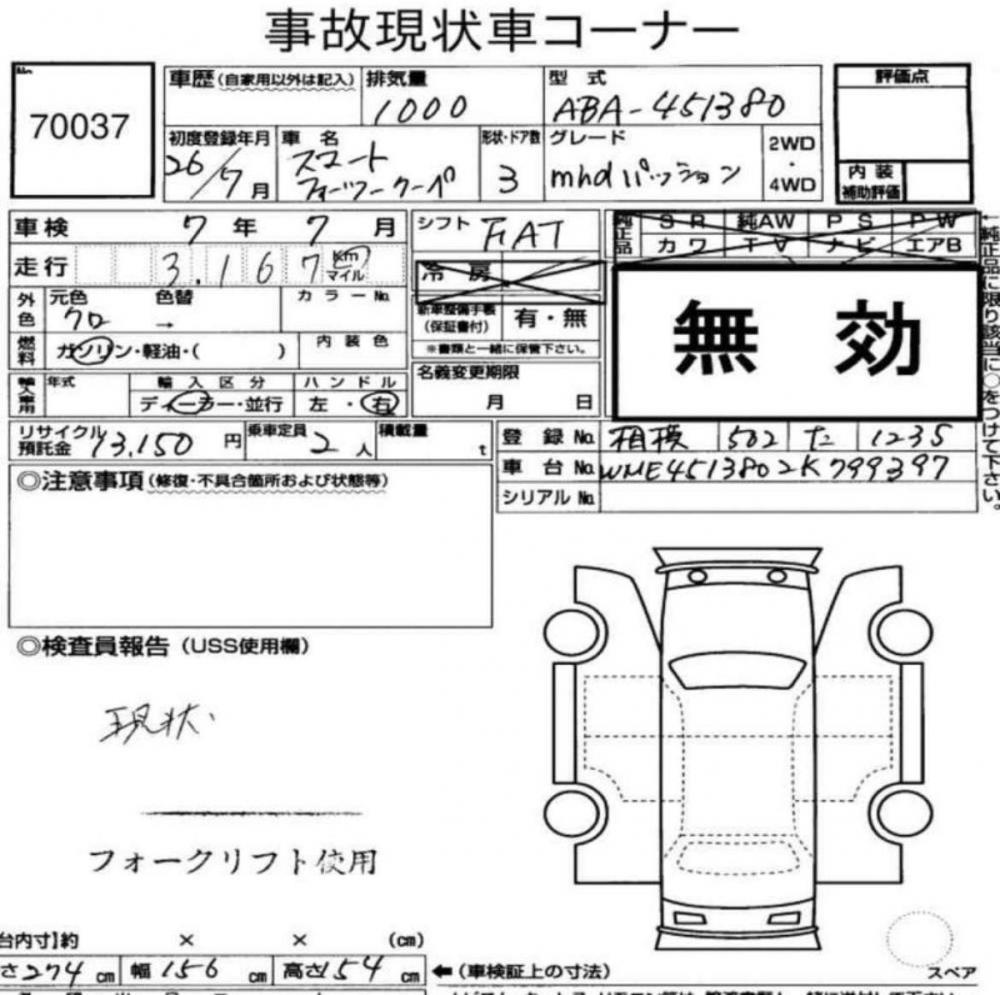 事故現状車コーナー
No.
70037
車歴(自家用以外は記入) 排気量 型式
1000 ABA-451380
評価点
初度登録年月 車名 形状・ドア数 グレード 2WD・4WD
26/7月 スマート フォーツークーペ 3 mhdパッション
内装補助評価
車検 7年 7月 シフト FAT
純正品 SR 純AW PS PW
カワ TV ナビ エアB
走行 3.167 km マイル
冷房
無効
外色 元色 色替 カラーNo.
クロ →
新車整備手帳(保証書付) 有・無
※書類と一緒に保管下さい。
燃料 ガソリン・軽油・( ) 内装色
名義変更期限
月 日
輸入車用 年式 輸入区分 ハンドル
ディーラー・並行 左・右
←純正品に限り該当に○をつけて下さい。
リサイクル預託金 13,150円 乗車定員 2人 積載量 t
登録No. 相模 502 た 1235
車台No. WME4513802K799397
シリアルNo.
◎注意事項(修復・不具合箇所および状態等)
◎検査員報告(USS使用欄)
現状
フォークリフト使用
台内寸】約 × × (cm)
さ274cm 幅156cm 高さ154cm ←(車検証上の寸法)
スペア